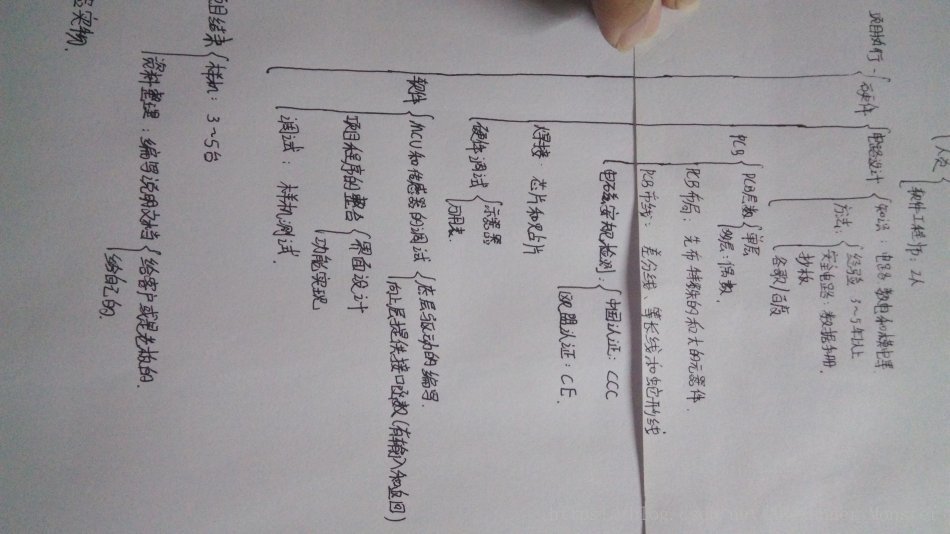 人员
软件工程师: 2人
项目执行
元器件
电路设计
知识: 电路 数电和模电等
方法:
经验法 3~5年以上
安全电路: 数据手册.
抄板
谷歌/百度
PCB
PCB层数
单层
多层: 偶数.
PCB布局: 先布特殊的和大的元器件.
PCB布线: 差分线、等长线和蛇形线
电磁安规检测:
中国认证: CCC
欧盟认证: CE.
焊接: 芯片和贴片
硬件调试
示波器
万用表.
软件
MCU和传感器的调试
底层驱动的编写.
向上层提供接口函数(有输入和返回)
项目程序的整合
界面设计
功能实现
调试: 样机测试.
项目结束
样机: 3~5台
资料整理: 编写说明文档
给客户或是老板的.
给自己的.
实物.